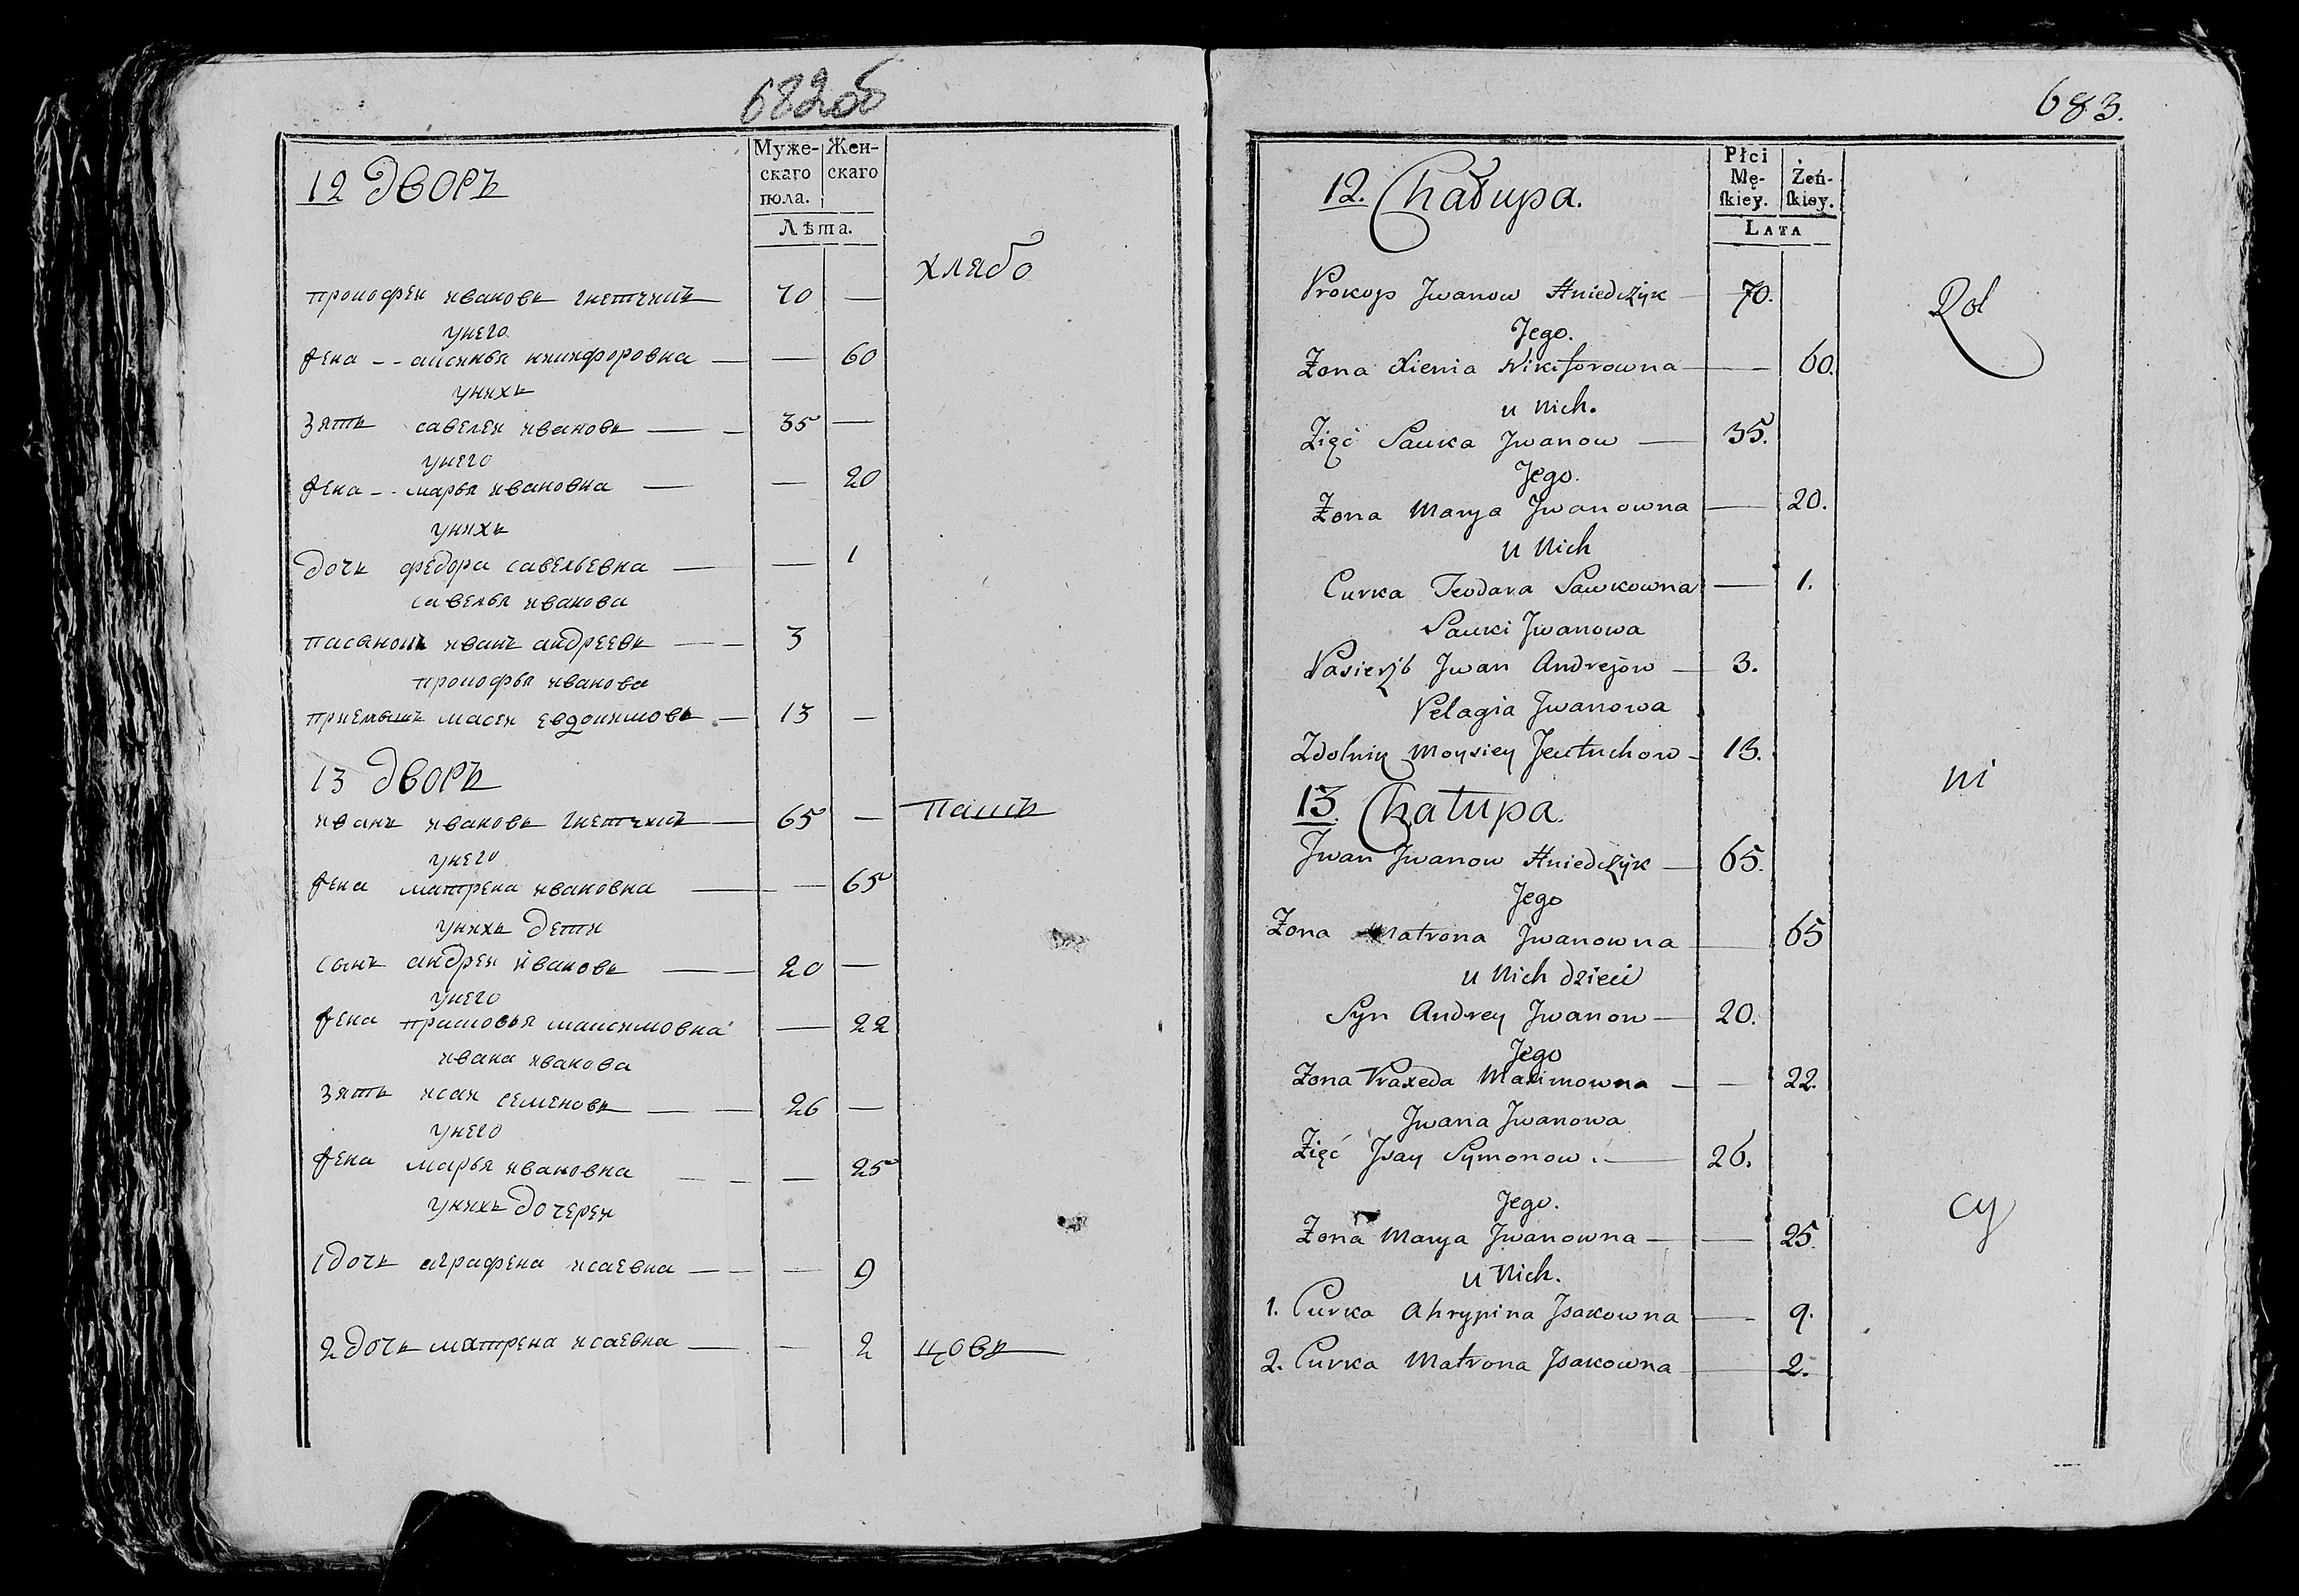 682об
12 дворъ
Муже-
скаго
пола.
Жен-
скаго
Лѣта.
хлебо
прокофеи ивановъ гнетчикъ 70 —
унего
жена -- аксинья никифоровна — — 60
унихъ
зять савелеи ивановъ — — 35 —
унего
жена -- марья ивановна — — 20
унихъ
дочь федора савельевна — — 1
савелья иванова
пасынокъ иванъ андреевъ — — 3
прокофья иванова
приемышъ масеи евдокимовъ — 13 —
13 дворъ
иванъ ивановъ гнетчикъ — 65 — паш
унего
жена матрена ивановна — — 65
унихъ дети
сынъ андреи ивановъ — — 20 —
унего
жена прасковья максимовна — 22
ивана иванова
зять исаи семеновъ — — 26 —
унего
жена марья ивановна — — — 25
унихъ дочереи
1 дочь аграфена исаевна — — — 9
2 дочь матрена исаевна — — 2 цовъ
683.
12. Chałupa.
Płci
Mę-
skiey.
Żeń-
skiey.
LATA
Prokop Jwanow Hniedczyk — 70.
Rol
Jego.
Żona Xienia Nikiforowna — 60.
u Nich.
Zięć Sawka Jwanow — 35.
Jego.
Żona Marya Jwanowna — 20.
u Nich
Curka Teodara Sawkowna — 1.
Sawki Jwanowa
Pasierzb Jwan Andrejow — 3.
Pelagia Jwanowa
Zdolniy Moysiey Jewtuchow — 13.
ni
13. Chatupa.
Jwan Jwanow Hniedczyk — 65.
Jego
Żona Matrona Jwanowna — 65
u Nich dzieci
Syn Andrey Jwanow — 20.
Jego
Żona Praxeda Maximowna — — 22.
Jwana Jwanowa
Zięć Jsay Symonow. — 26.
Jego.
cy
Żona Marya Jwanowna — — 25.
u Nich.
1. Curka Ahrypina Jsakowna — 9.
2. Curka Matrona Jsakowna — 2.